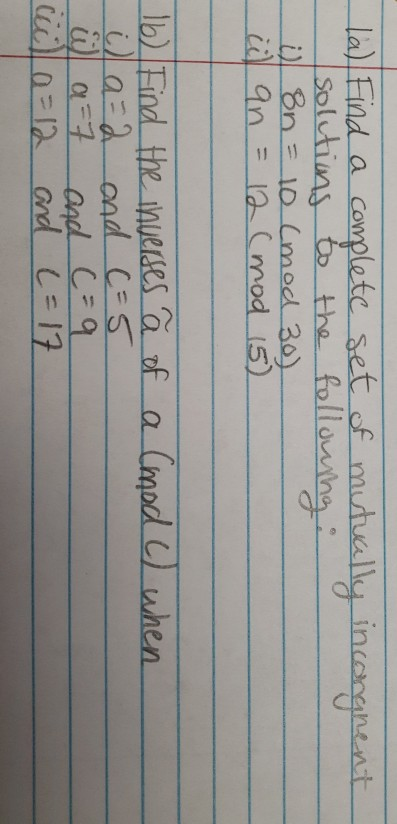 1a) Find a complete set of mutually incongruent
solutions to the following:
i) 8n = 10 (mod 30)
ii) 9n = 12 (mod 15)
1b) Find the inverses ã of a (mod c) when
i) a=2 and c=5
ii) a=7 and c=9
iii) a=12 and c=17